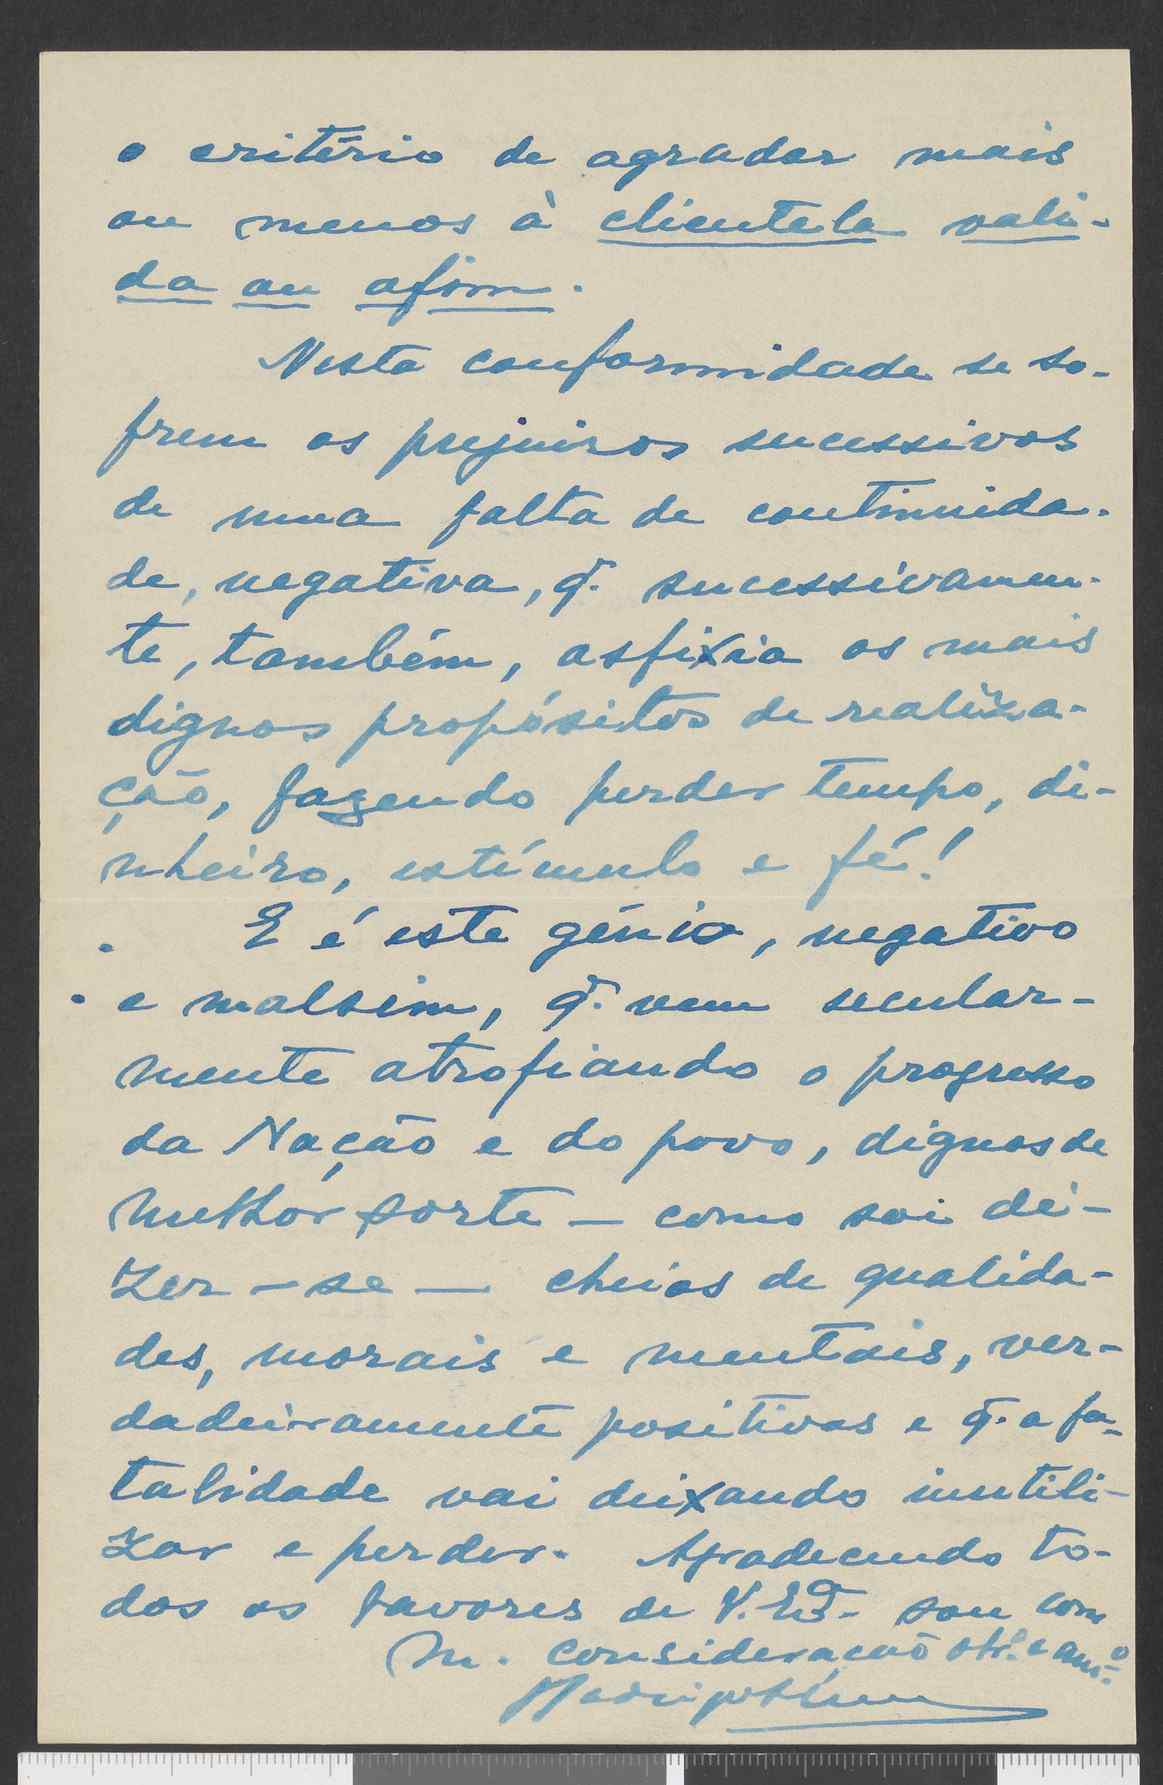 o critério de agradar mais
ou menos à clientela vali-
da ou afim.
Nesta conformidade se so-
frem os prejuizos sucessivos
de uma falta de continuida-
de, negativa, q. sucessivamen-
te, também, asfixia os mais
dignos propósitos de realiza-
ção, fazendo perder tempo, di-
nheiro, estímulo e fé!
E é este génio, negativo
e malsim, q. vem secular-
mente atrofiando o progresso
da Nação e do povo, dignos de
melhor sorte — como soi di-
zer-se — cheios de qualida-
des, morais e mentais, ver-
dadeiramente positivas e q. a fa-
talidade vai deixando inutili-
zar e perder. Agradecendo to-
dos os favores de V. Exª. sou com
m. consideração